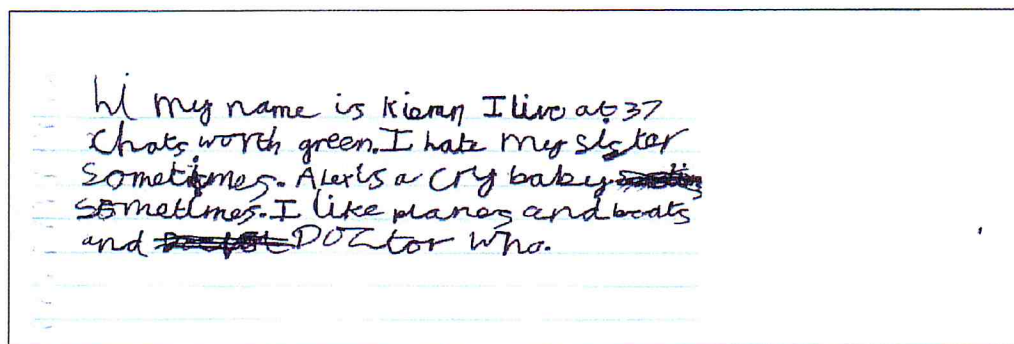 hi my name is Kieran I live at 37
Chats worth green. I hate my sister
Sometimes. Alex is a cry baby
sometimes. I like planes and boats
and DOCtor who.